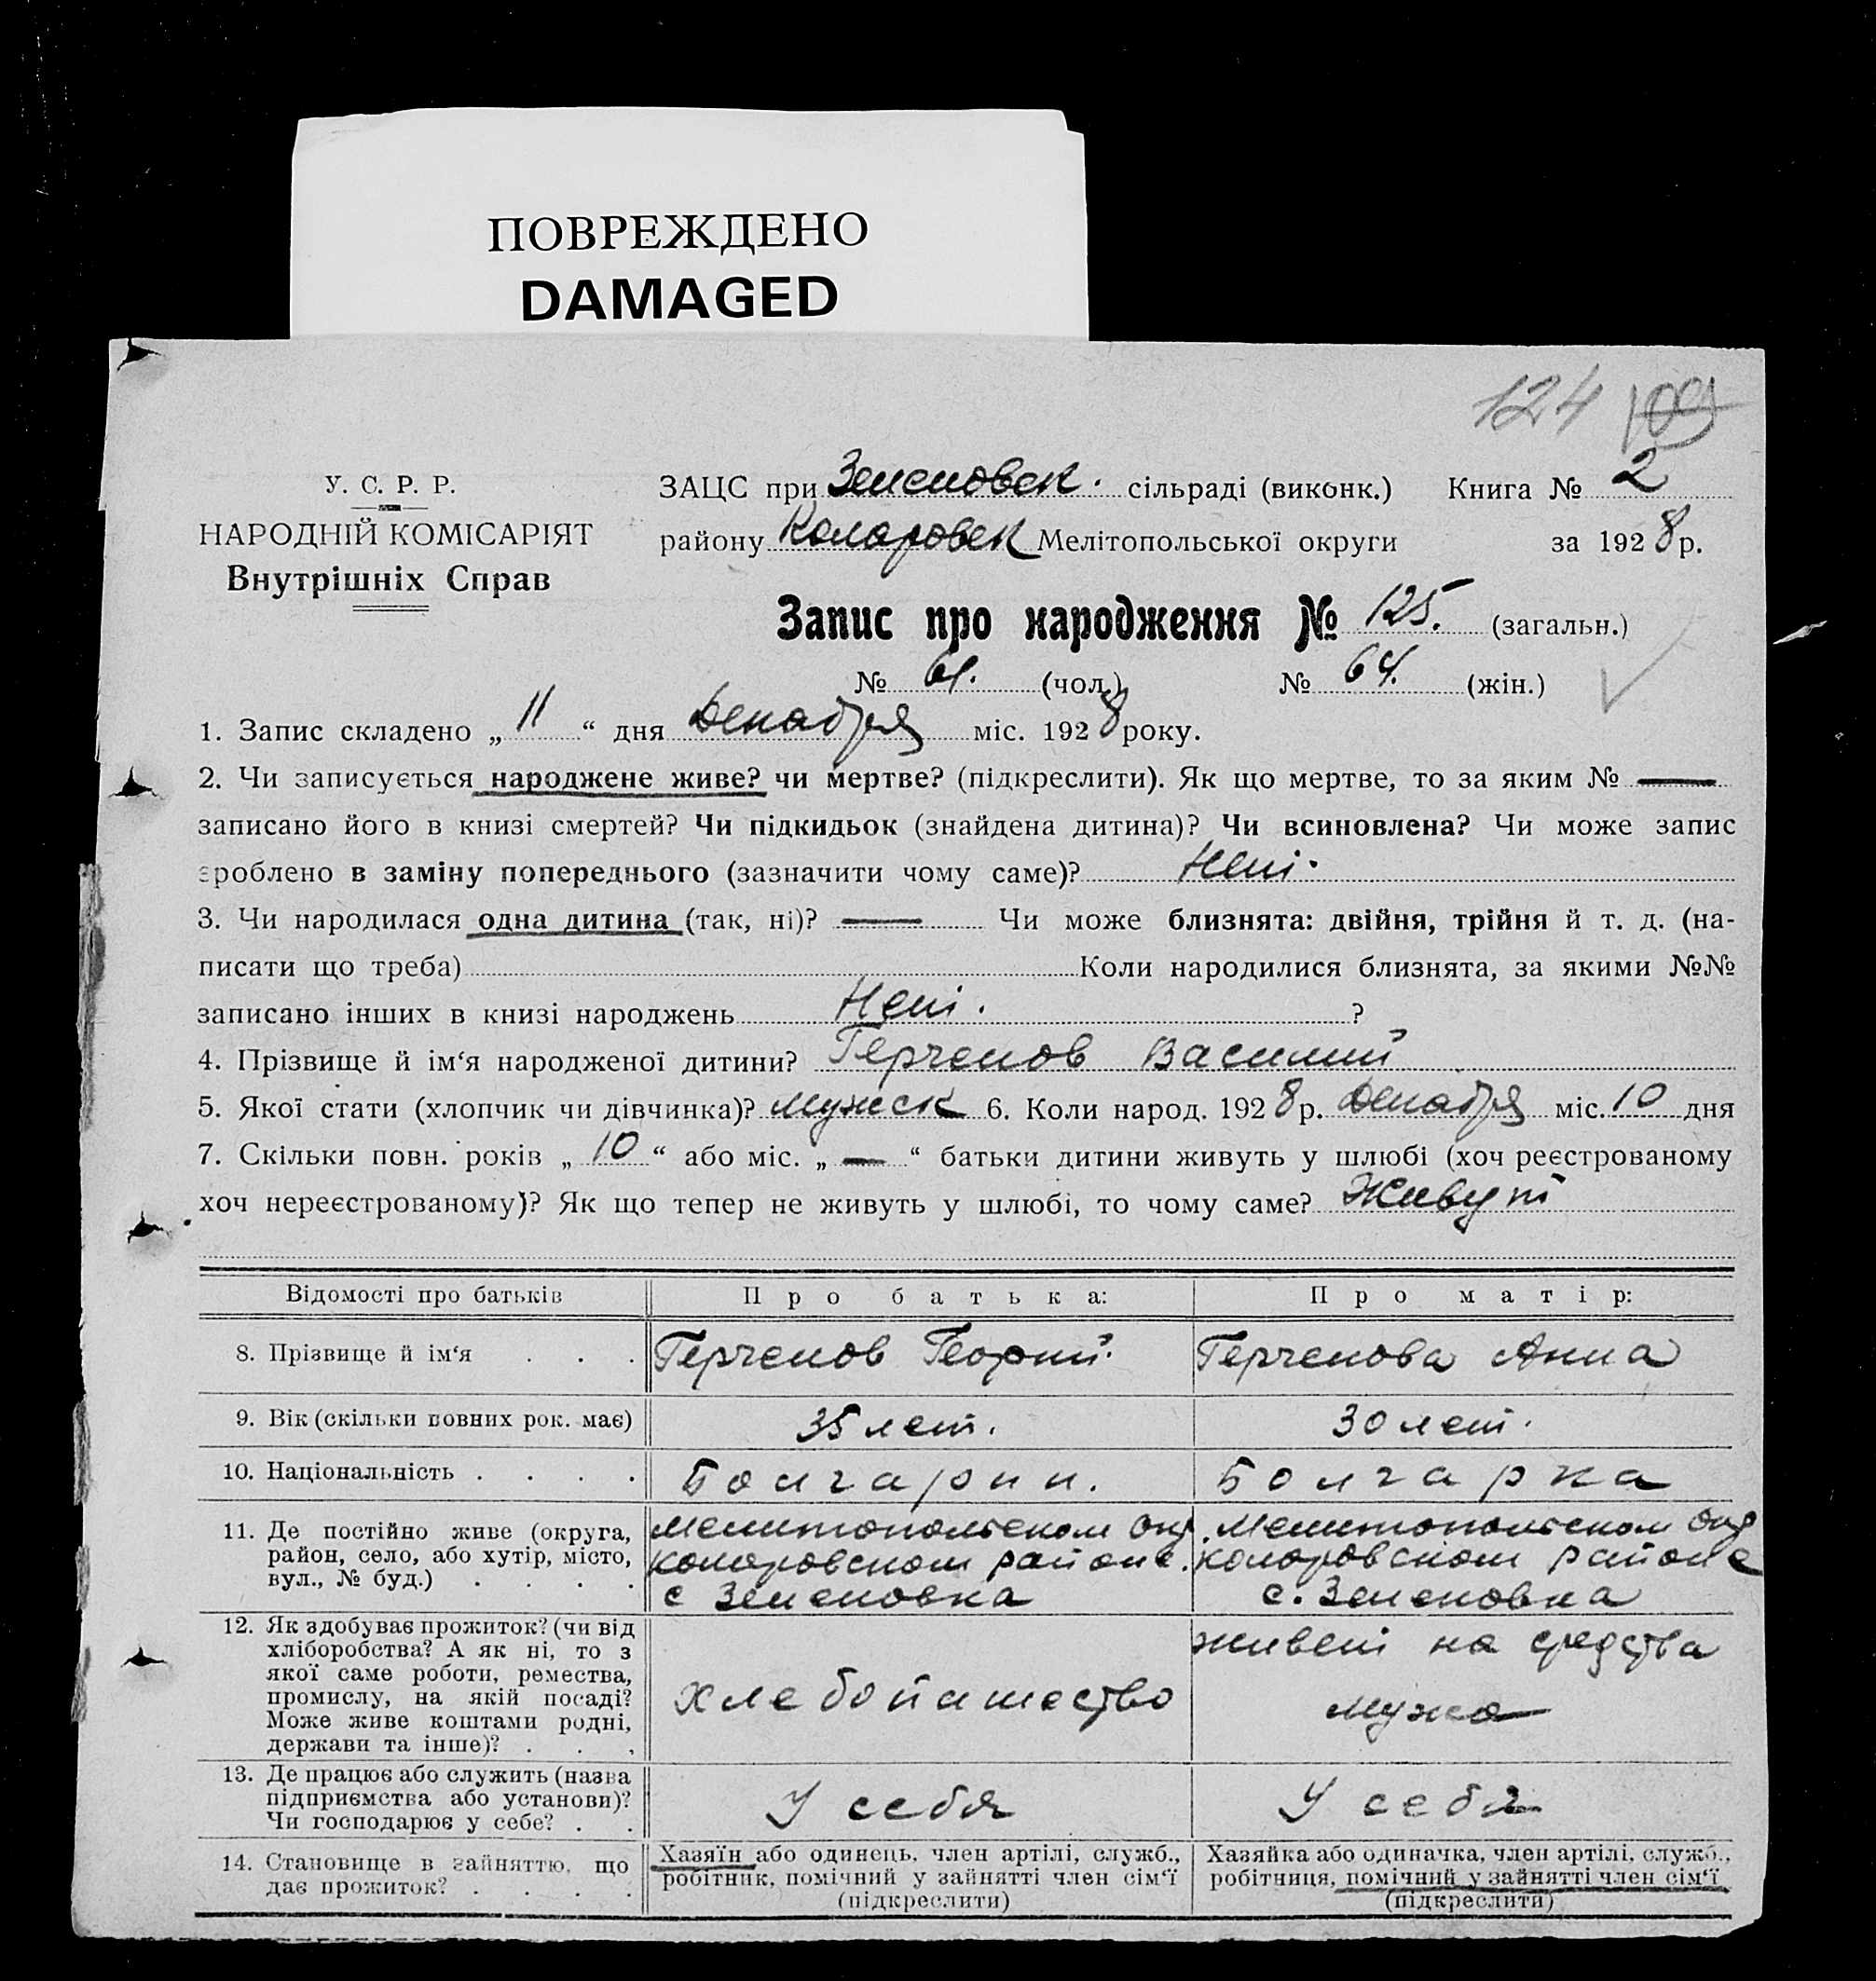 ПОВРЕЖДЕНО
DAMAGED
124 109
У. С. Р. Р.
НАРОДНІЙ КОМІСАРІЯТ
Внутрішніх Справ
ЗАЦС при Зеленовск. сільраді (виконк.) Книга № 2
району Коларовск Мелітопольської округи за 1928 р.
Запис про народження № 125. (загальн.)
№ 61. (чол.) № 64. (жін.)
1. Запис складено „ 11 “ дня Декабря міс. 1928 року.
2. Чи записується народжене живе? чи мертве? (підкреслити). Як що мертве, то за яким № —
записано його в книзі смертей? Чи підкидьок (знайдена дитина)? Чи всиновлена? Чи може запис
зроблено в заміну попереднього (зазначити чому саме)? Нет.
3. Чи народилася одна дитина (так, ні)? — Чи може близнята: двійня, трійня й т. д. (на-
писати що треба) Коли народилися близнята, за якими №№
записано інших в книзі народжень Нет. ?
4. Прізвище й ім‘я народженої дитини? Герченов Василий
5. Якої стати (хлопчик чи дівчинка)? мужск 6. Коли народ. 1928 р. Декабря міс. 10 дня
7. Скільки повн. років „ 10 “ або міс. „ — “ батьки дитини живуть у шлюбі (хоч реєстрованому
хоч нереєстрованому)? Як що тепер не живуть у шлюбі, то чому саме? Живут
Відомості про батьків Про батька: Про матір:
8. Прізвище й ім‘я . . . Герченов Георгий. Герченова Анна
9. Вік (скільки повних рок. має) 35 лет. 30 лет.
10. Національність . . . . Болгарин. Болгарка
11. Де постійно живе (округа, Мелитопольском окр. Мелитопольском окр
район, село, або хутір, місто, Коларовском районе. Коларовском районе
вул., № буд.) . . . . с Зеленовка с. Зеленовка
12. Як здобуває прожиток? (чи від
хліборобства? А як ні, то з
якої саме роботи, ремества,
промислу, на якій посаді?
Може живе коштами родні,
держави та інше)? . . .
хлебопашество
живет на средства
мужа
13. Де працює або служить (назва
підприємства або установи)?
Чи господарює у себе? . .
У себя У себя
14. Становище в зайняттю, що
дає прожиток? . . . .
Хазяїн або одинець, член артілі, служб.,
робітник, помічний у зайнятті член сім‘ї
(підкреслити)
Хазяйка або одиначка, член артілі, служб.,
робітниця, помічний у зайнятті член сім‘ї
(підкреслити)